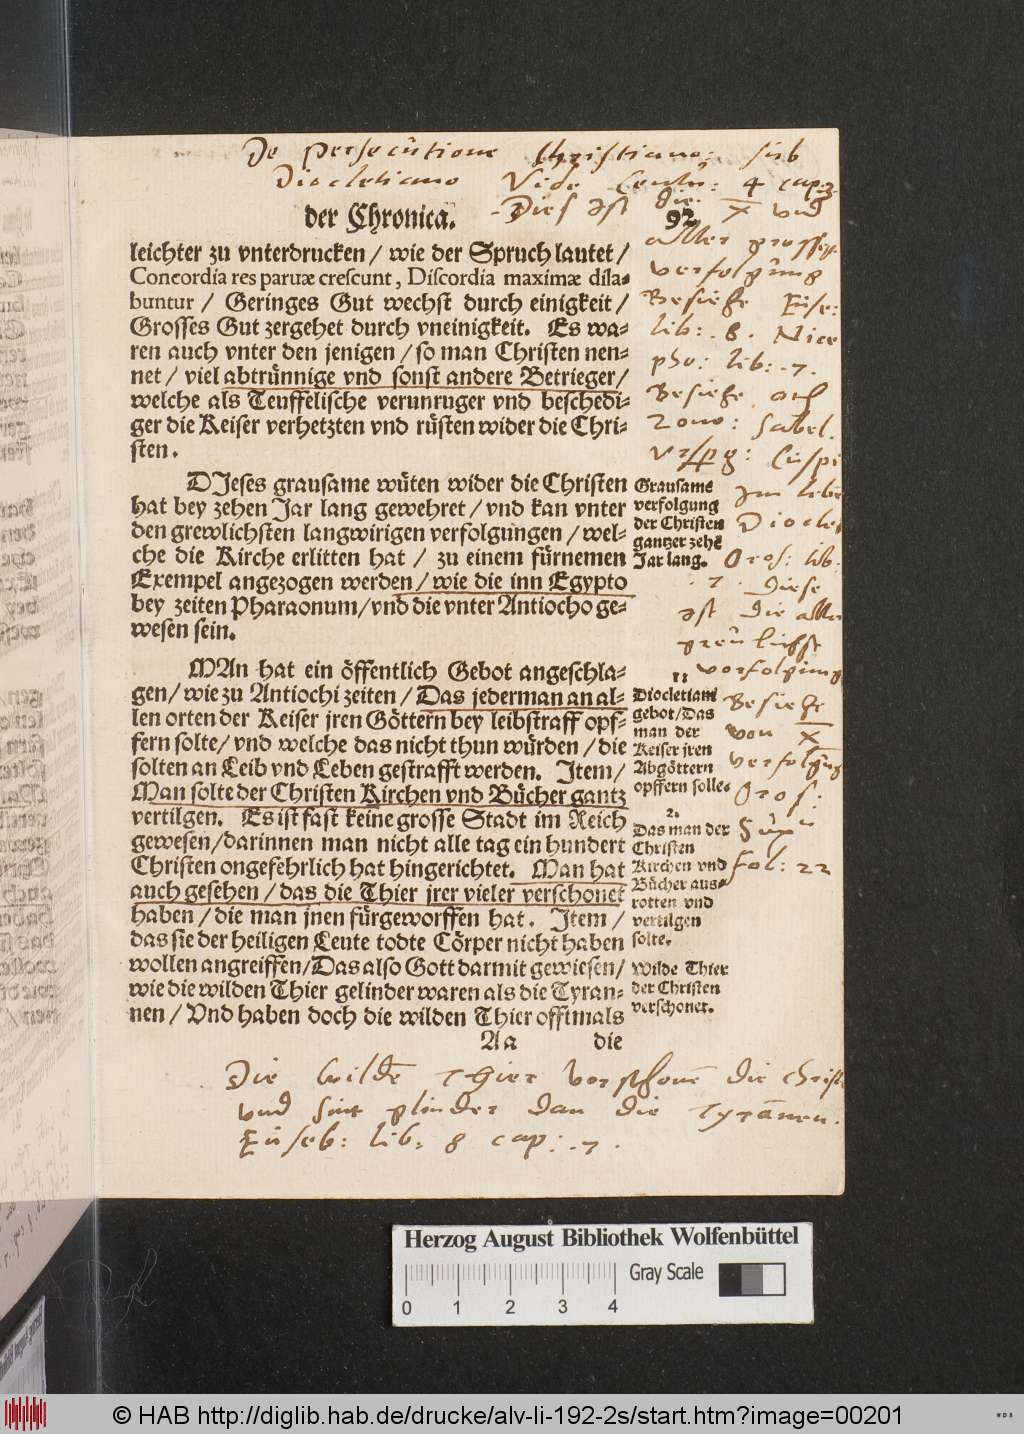 De persecutione Christiano: sub
Diocletiano Vide Centu: 4 cap: 3.
der Chronica.
Dies ist die X vnd
92
aller grosseste
verfolgung
Besiehe Euse:
lib: 8. Nice
pho: lib: 7.
Besiehe och
Zono: Sabel.
Vrspg: Cuspi
Im leben
Diocle
Oros: lib:
7. Diese
ist die aller
greulichst
vorfolgung
Besiehe
von X
verfolgung
Oros:
fol: 22
leichter zu vnterdrucken / wie der Spruch lautet /
Concordia res paruæ crescunt, Discordia maximæ dila-
buntur / Geringes Gut wechst durch einigkeit /
Grosses Gut zergehet durch vneinigkeit. Es wa-
ren auch vnter den jenigen / so man Christen nen-
net / viel abtrünnige vnd sonst andere Betrieger /
welche als Teuffelische verunruger vnd beschedi-
ger die Keiser verhetzten vnd rüsten wider die Chri-
sten.
DJeses grausame wüten wider die Christen
hat bey zehen Jar lang gewehret / vnd kan vnter
den grewlichsten langwirigen verfolgungen / wel-
che die Kirche erlitten hat / zu einem fürnemen
Exempel angezogen werden / wie die inn Egypto
bey zeiten Pharaonum / vnd die vnter Antiocho ge-
wesen sein.
Grausame
verfolgung
der Christen
gantzer zehē
Jar lang.
MAn hat ein öffentlich Gebot angeschla-
gen / wie zu Antiochi zeiten / Das jederman an al-
len orten der Keiser jren Göttern bey leibstraff opf-
fern solte / vnd welche das nicht thun würden / die
solten an Leib vnd Leben gestrafft werden. Item /
Man solte der Christen Kirchen vnd Bücher gantz
vertilgen. Es ist fast keine grosse Stadt im Reich
gewesen / darinnen man nicht alle tag ein hundert
Christen ongefehrlich hat hingerichtet. Man hat
auch gesehen / das die Thier jrer vieler verschonet
haben / die man jnen fürgeworffen hat. Item /
das sie der heiligen Leute todte Cörper nicht haben
wollen angreiffen / Das also Gott darmit gewiesen /
wie die wilden Thier gelinder waren als die Tyran-
nen / Vnd haben doch die wilden Thier offtmals
Aa die
Diocletiani
gebot / Das
man der
Keiser jren
Abgöttern
opffern solle.
2.
Das man der
Christen
Kirchen vnd
Bücher aus-
rotten vnd
vertilgen
solte.
Wilde Thier
der Christen
verschonet.
Die wilde Thier vorschone die Christ
vnd sint glinder dan die Tyrānen.
Euseb: lib: 8 cap: 7.
Herzog August Bibliothek Wolfenbüttel
Gray Scale
0 1 2 3 4
© HAB http://diglib.hab.de/drucke/alv-li-192-2s/start.htm?image=00201